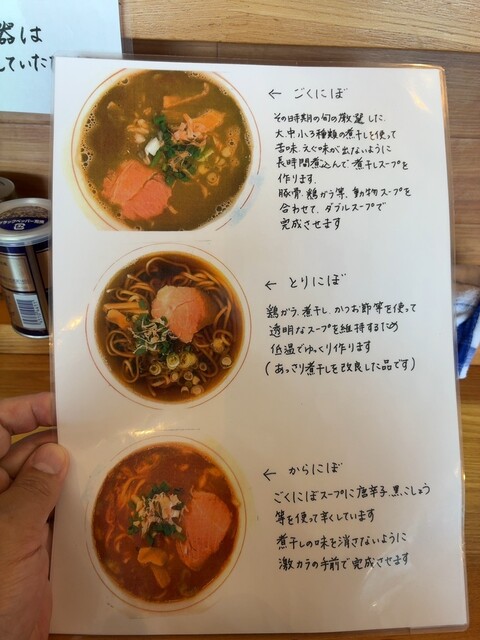 器は
していただ
← ごくにぼ
その時期の旬の厳選した
大中小3種類の煮干しを使って
苦味、えぐ味が出ないように
長時間煮込んで、煮干しスープを
作ります。
豚骨、鶏ガラ等、動物スープを
合わせて、ダブルスープで
完成させます
← とりにぼ
鶏ガラ、煮干し、かつお節等を使って
透明なスープを維持するため
低温でゆっくり作ります
(あっさり煮干しを改良した品です)
← からにぼ
ごくにぼスープに唐辛子、黒こしょう
等を使って辛くしています
煮干しの味を消さないように
激カラの手前で完成させます